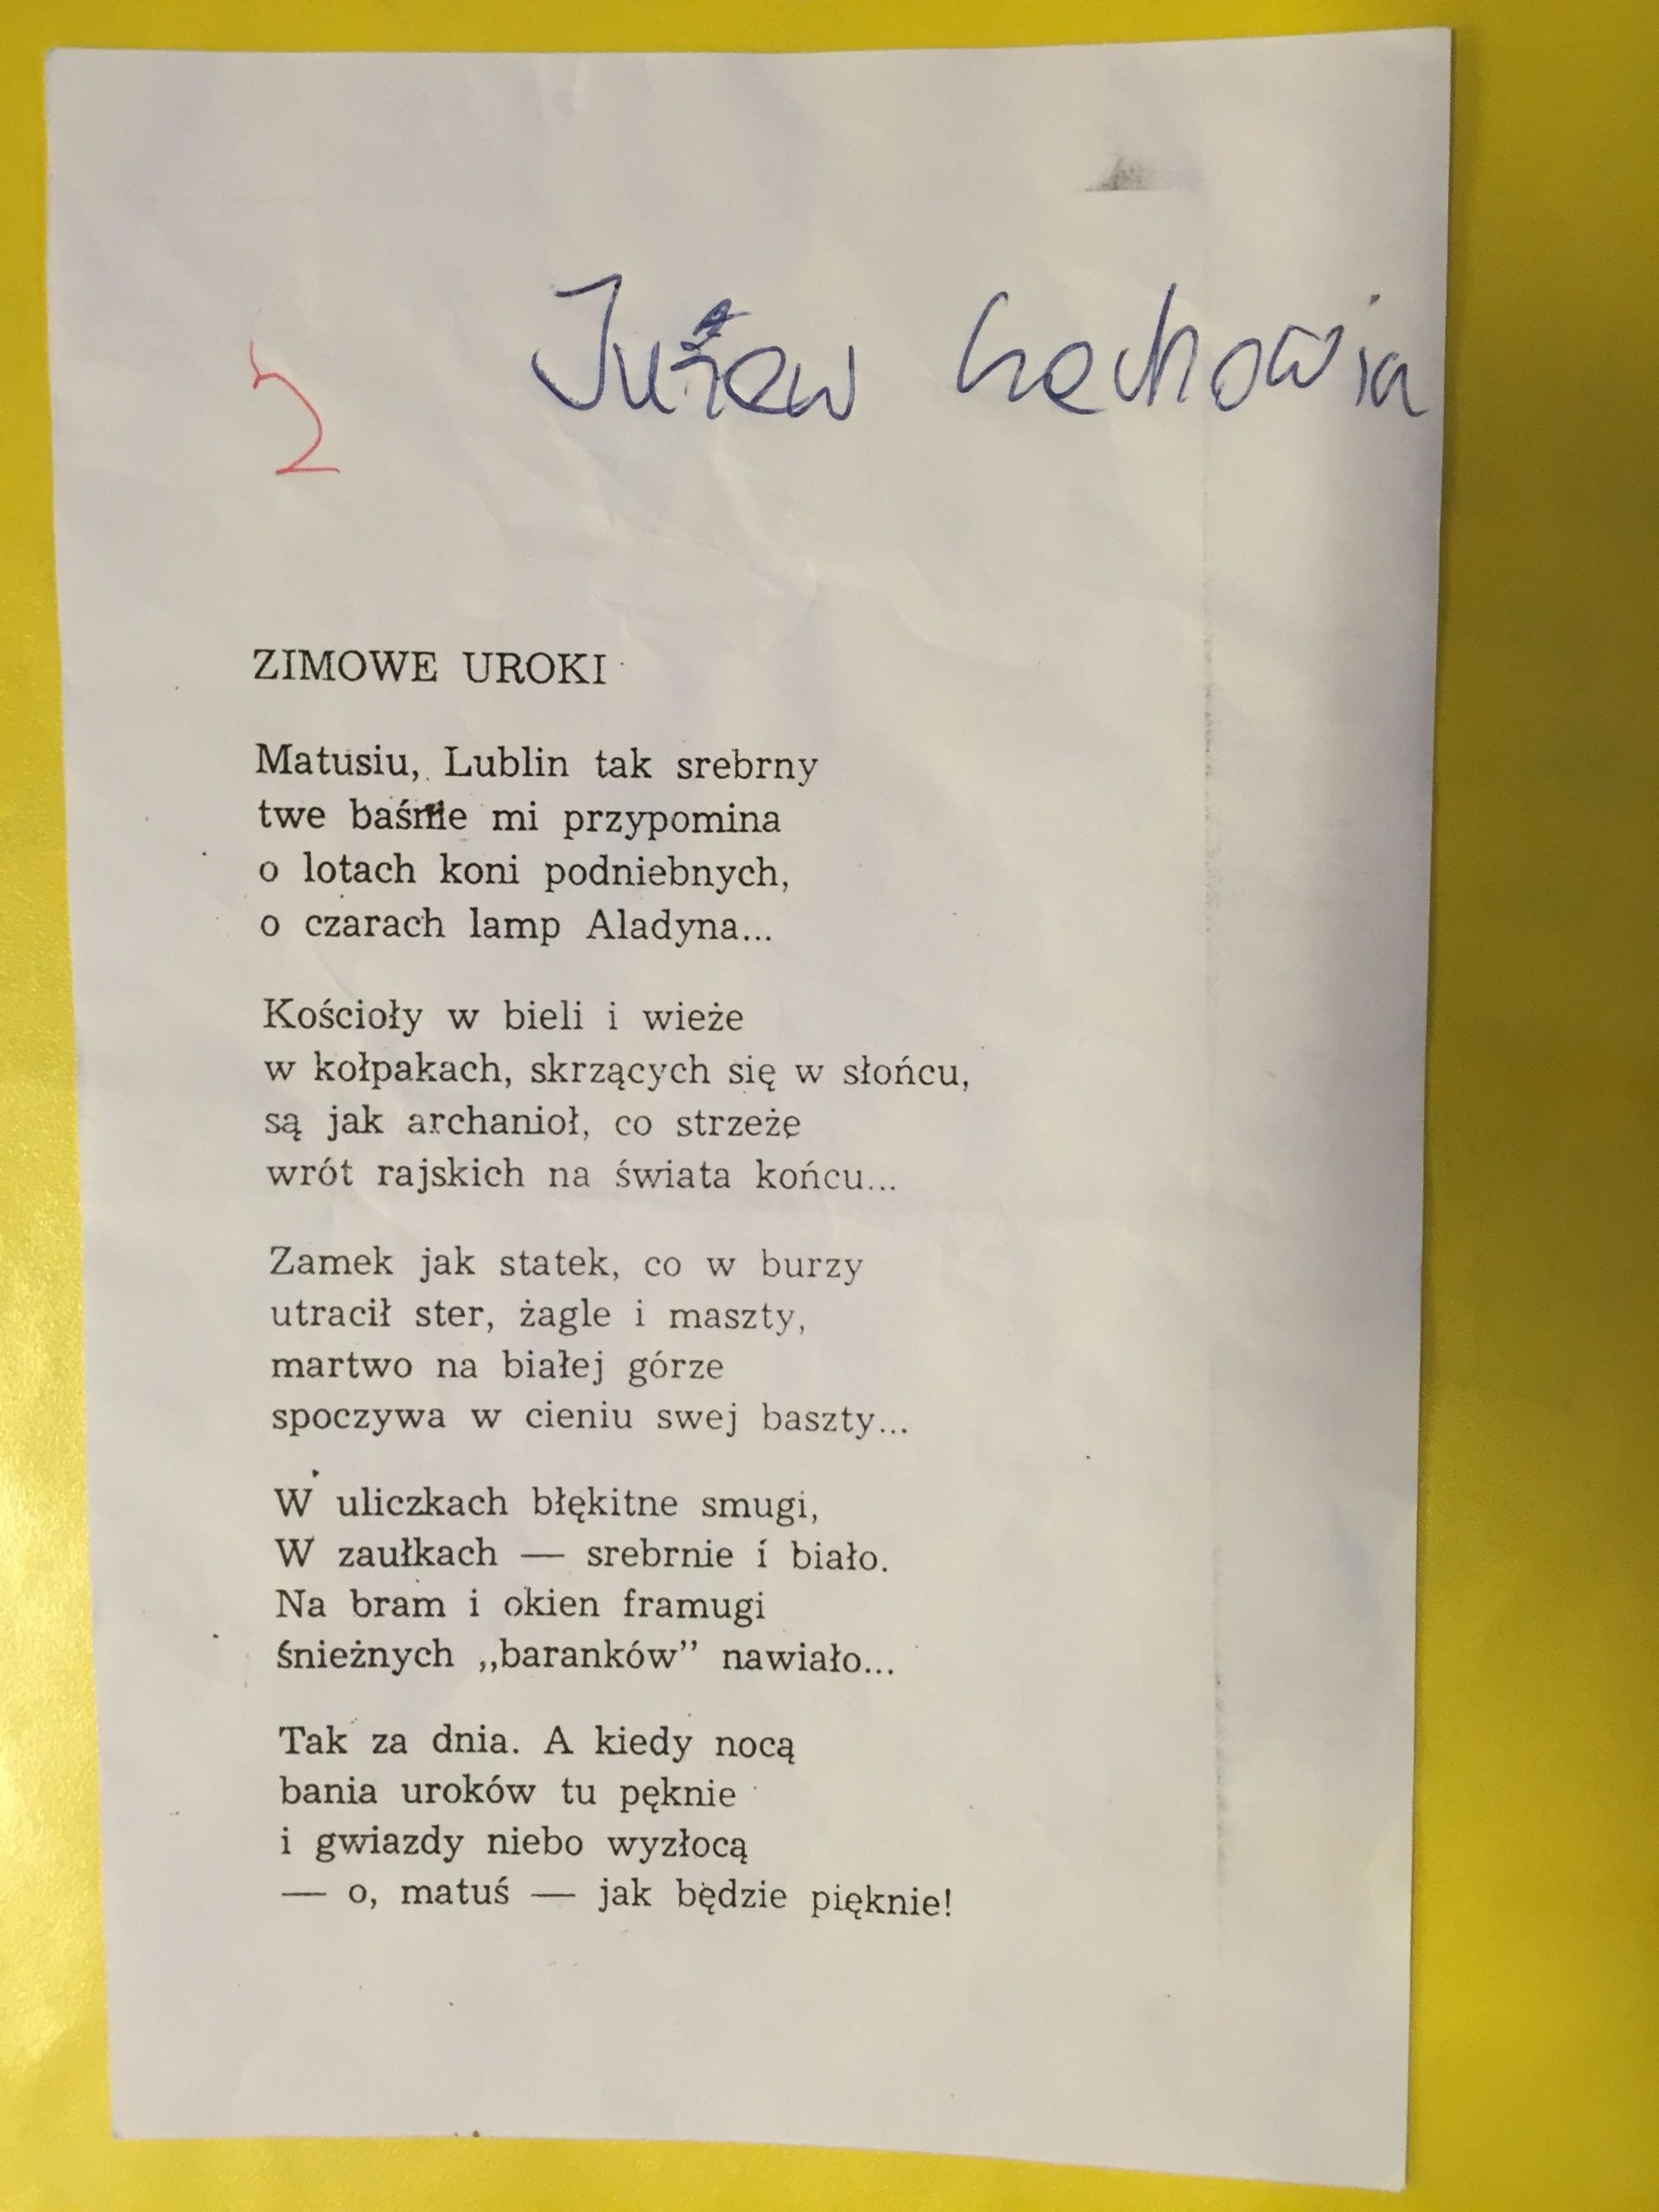 ZIMOWE UROKI
Matusiu, Lublin tak srebrny
twe baśnie mi przypomina
o lotach koni podniebnych,
o czarach lamp Aladyna...
Kościoły w bieli i wieże
w kołpakach, skrzących się w słońcu,
są jak archanioł, co strzeże
wrót rajskich na świata końcu...
Zamek jak statek, co w burzy
utracił ster, żagle i maszty,
martwo na białej górze
spoczywa w cieniu swej baszty...
W uliczkach błękitne smugi,
W zaułkach — srebrnie i biało.
Na bram i okien framugi
śnieżnych „baranków” nawiało...
Tak za dnia. A kiedy nocą
bania uroków tu pęknie
i gwiazdy niebo wyzłocą
— o, matuś — jak będzie pięknie!